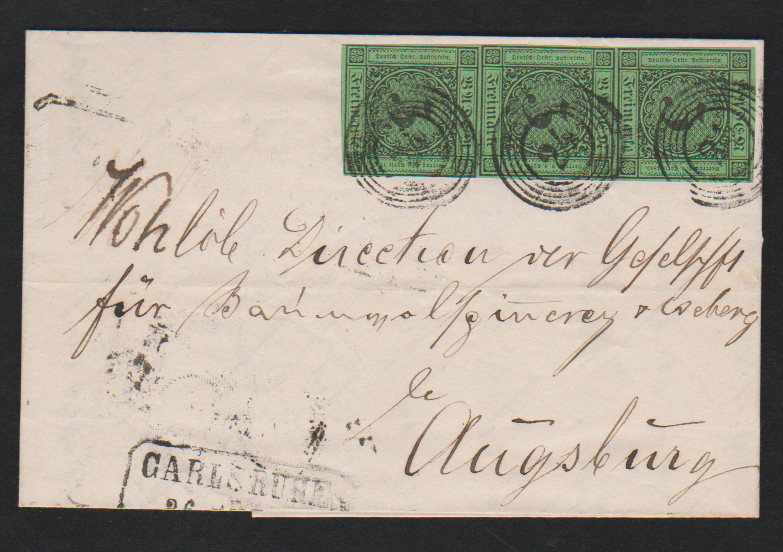 Deutsch-Oestr. Postverein. Deutsch-Oestr. Postverein. Deutsch-Oestr. Postverein.
Freimarke Freimarke Freimarke
24 24
Wohllöb. Direction der Gesellschft
für Baumwollspinerey & Weberg
Augsburg
CARLSRUHE
26